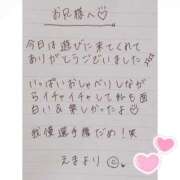 お兄様へ♡
今日は遊びに来てくれて
ありがとうございました
いっぱいおしゃべりしなが
らイチャイチャして私も面
白い&楽しかったよ☺
我慢選手権だめ！笑
えまより☺